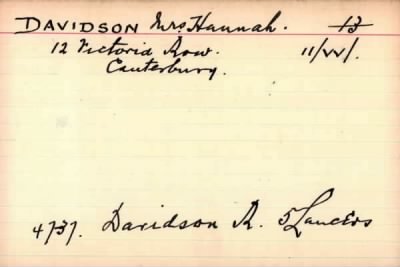 DAVIDSON Mrs Hannah. 13
12 Victoria Row. 11/W/.
Canterbury.
4737. Davidson R. 5 Lancers